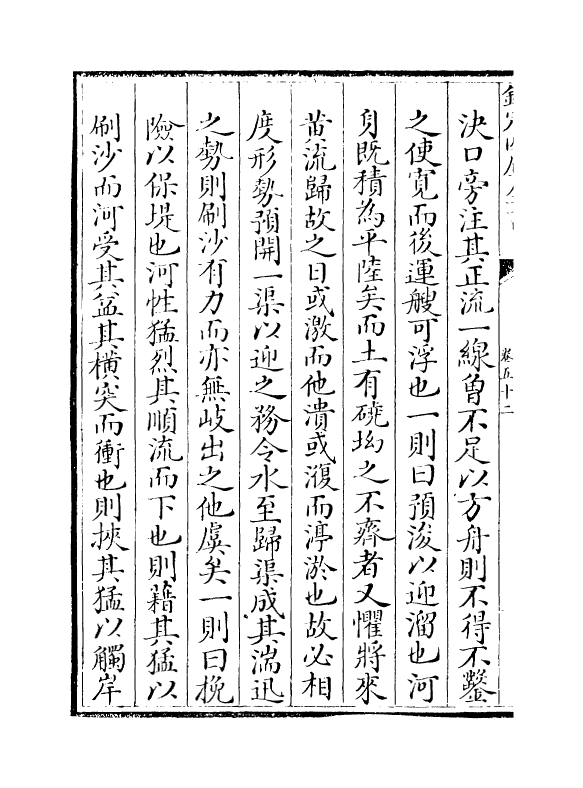 決口旁注其正流一線曾不足以方舟則不得不鑿
之使寛而後運艘可浮也一則曰預浚以迎溜也河
身既積為平陸矣而土有磽坳之不齊者又懼將來
黄流歸故之日或激而他潰或澓而渟淤也故必相
度形勢預開一渠以迎之務令水至歸渠成其湍迅
之勢則刷沙有力而亦無岐出之他虞矣一則曰挽
險以保堤也河性猛烈其順流而下也則藉其猛以
刷沙而河受其益其橫突而衝也則挾其猛以觸岸
卷五十二